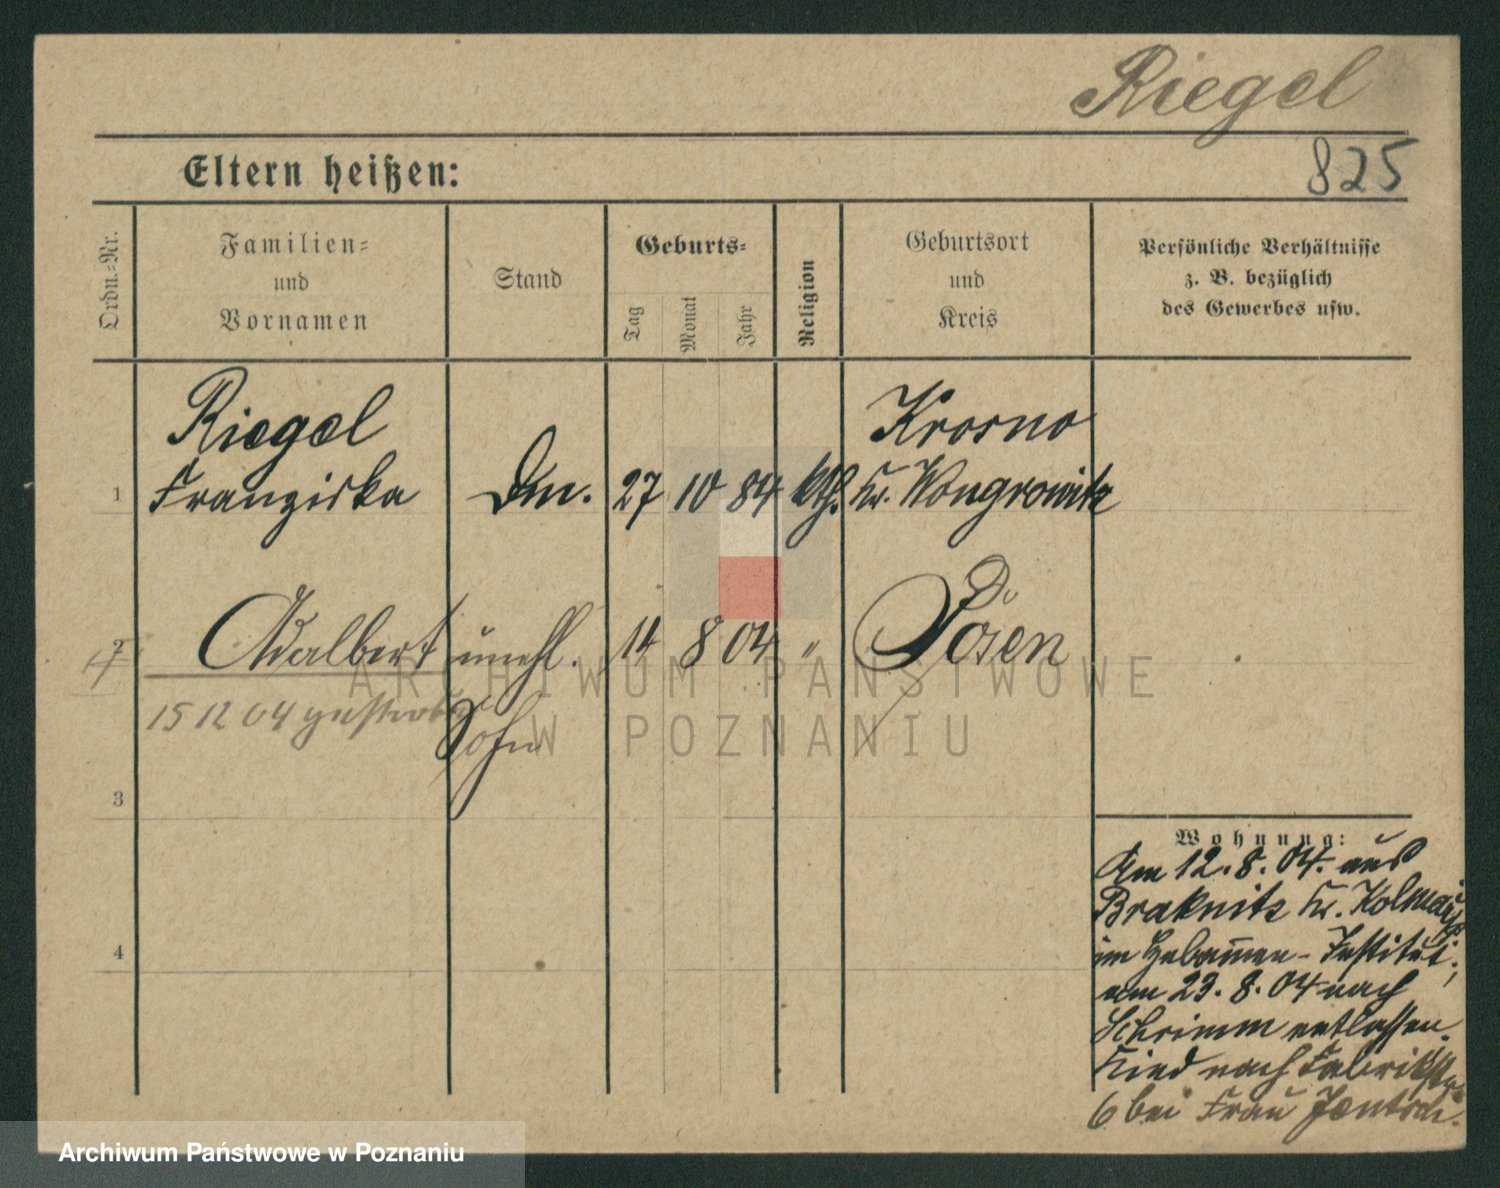 Riegel
825
Eltern heißen:
Ordn.-Nr.
Familien-
und
Vornamen
Stand
Geburts-
Tag
Monat
Jahr
Religion
Geburtsort
und
Kreis
Persönliche Verhältnisse
z. B. bezüglich
des Gewerbes usw.
Riegel
Krosno
1 Franziska Dm. 27 10 84 kth. Kr. Wongrowitz
2 Adalbert unehl. 14 8 04 " Posen
15 12 04 gestorben
Sohn
3
4
Wohnung:
Am 12. 8. 04. aus
Braknitz Kr. Kolmar
im Hebammen-Institut;
am 23. 8. 04 nach
Schrimm entlassen.
Kind nach Fabrikstr.
6 bei Frau
ARCHIWUM PAŃSTWOWE
W POZNANIU
Archiwum Państwowe w Poznaniu